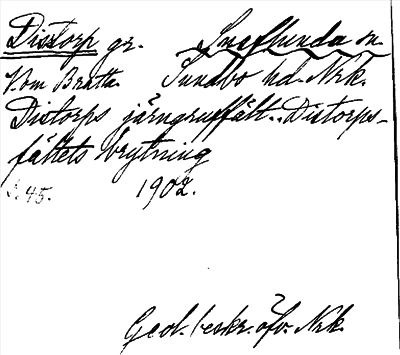 Distorp gr. Snaflunda sn.
V. om Bratta. Sundbo hd. Nrk.
Distorps järngruffält. Distorps-
fältets brytning
s. 45. 1902.
Geol. beskr. öfv. Nrk.